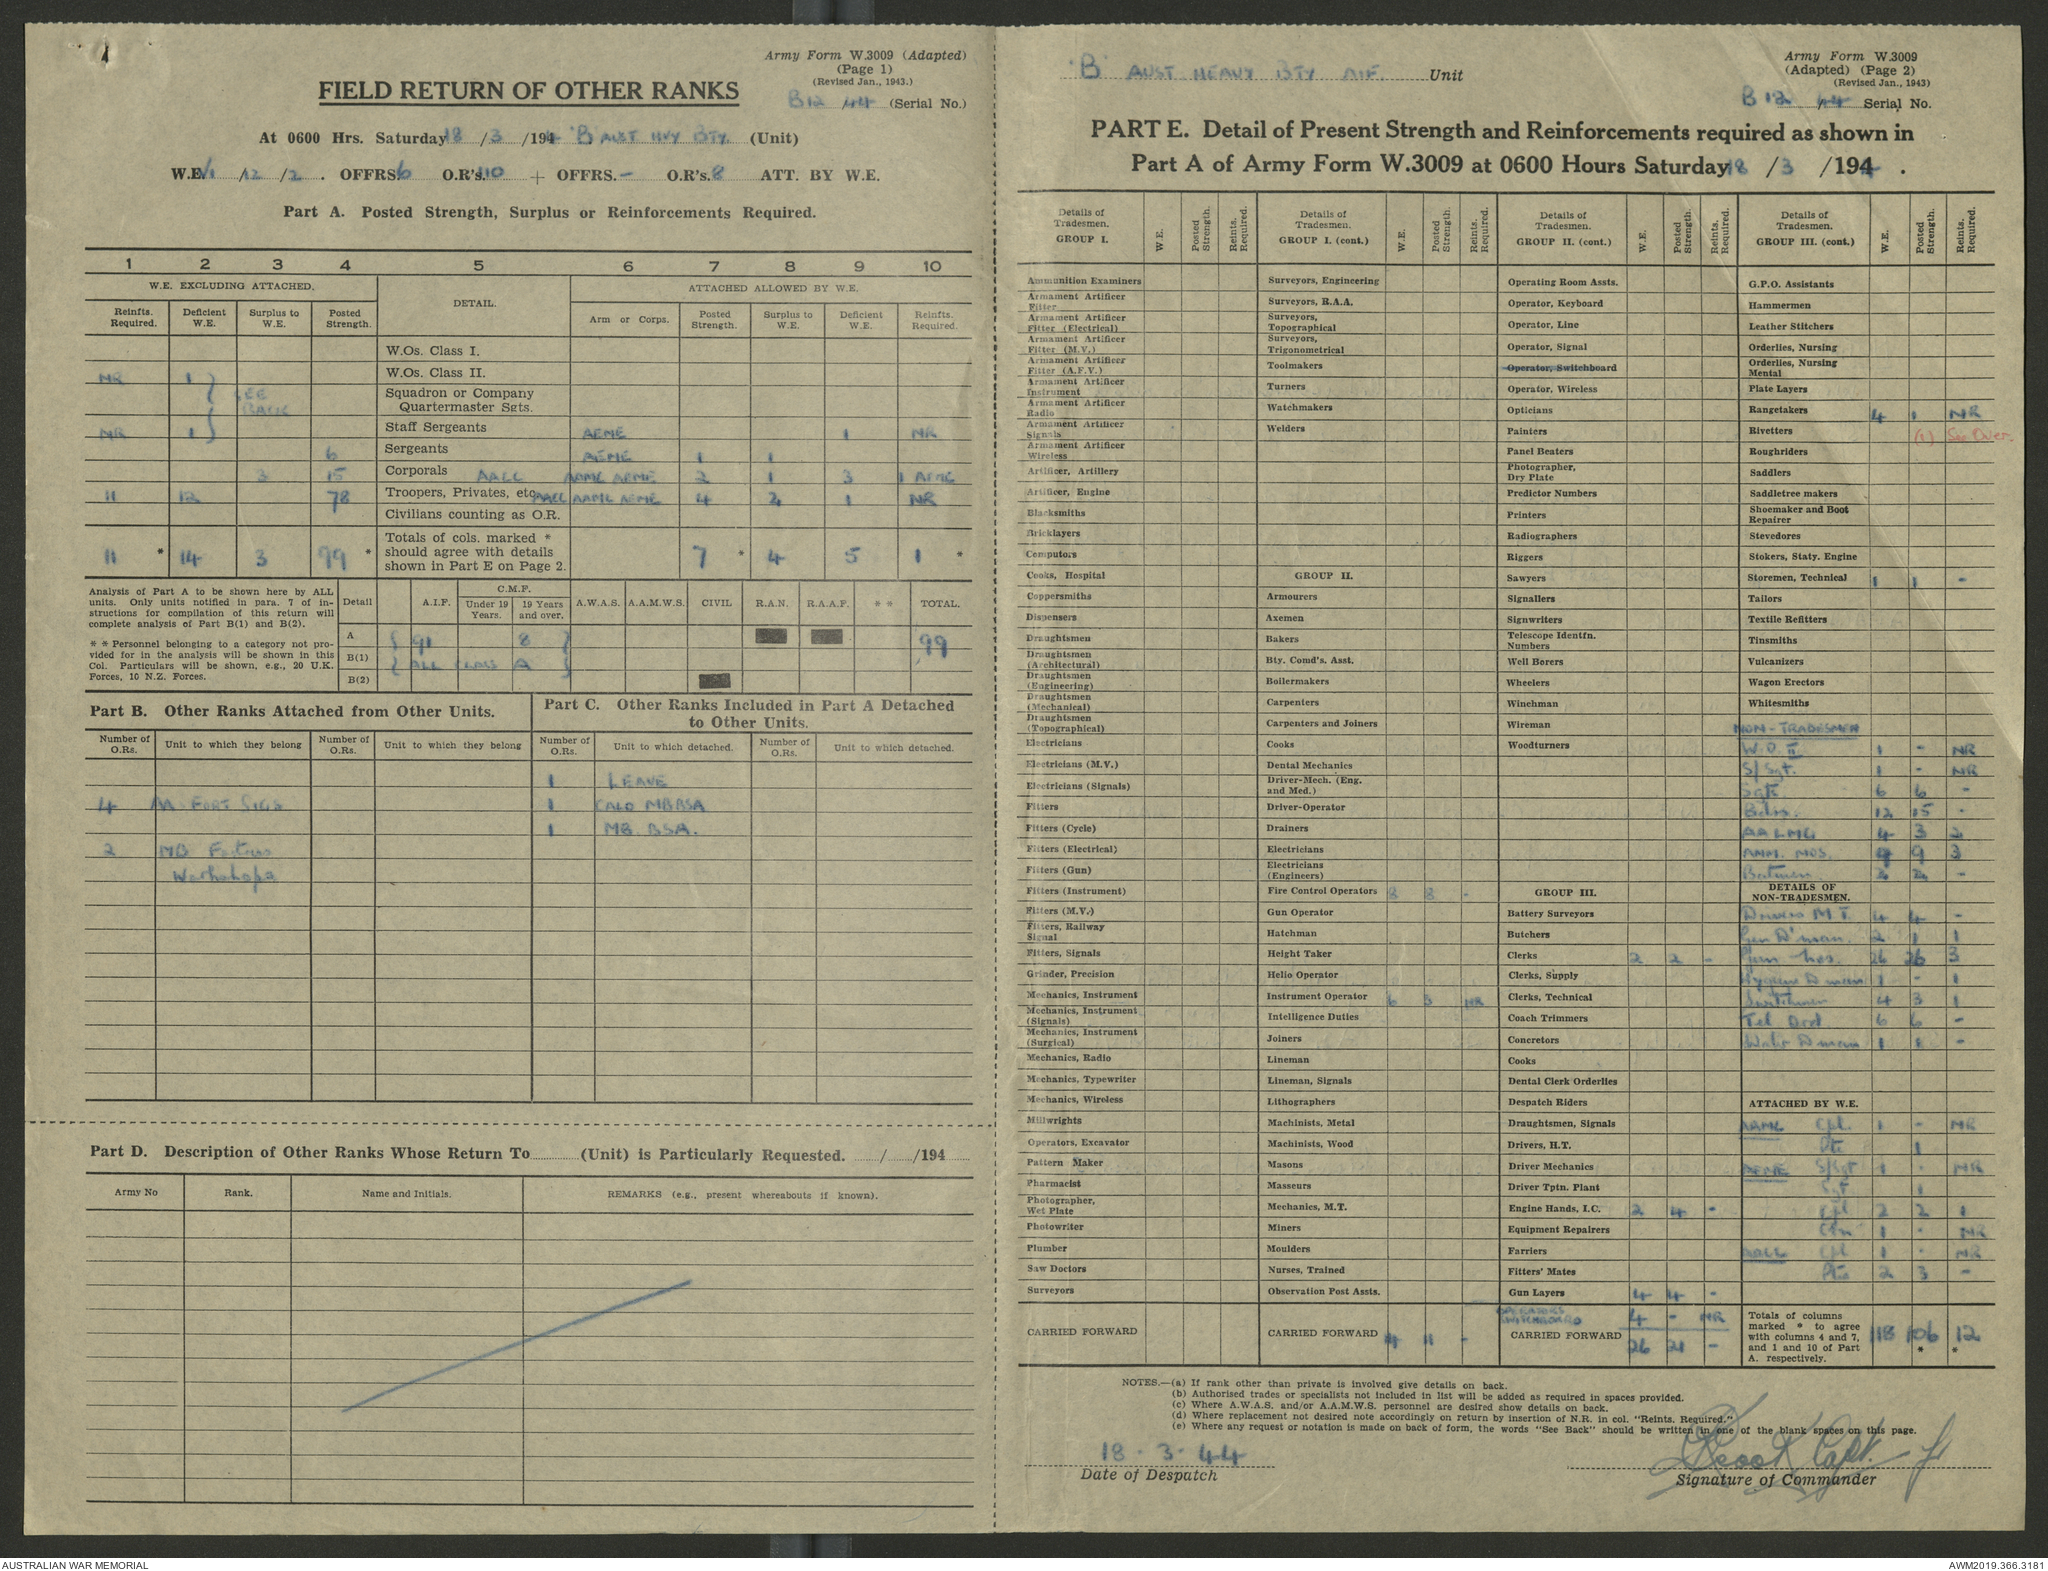 Army Form W.3009 (Adapted)
(Page 1)
(Revised Jan., 1943.)
FIELD RETURN OF OTHER RANKS
B12 44 (Serial No.)
At 0600 Hrs. Saturday 18 /3 /1944 'B' AUST HVY BTY. (Unit)
W.E. VI /12 /2 . OFFRS. 6 O.R's. 110 + OFFRS. - O.R's. 8 ATT. BY W.E.
Part A. Posted Strength, Surplus or Reinforcements Required.
1 2 3 4 5 6 7 8 9 10
W.E. EXCLUDING ATTACHED. DETAIL. ATTACHED ALLOWED BY W.E.
Reinfts. Required. Deficient W.E. Surplus to W.E. Posted Strength. Arm or Corps. Posted Strength. Surplus to W.E. Deficient W.E. Reinfts. Required.
W.Os. Class I.
NR 1 W.Os. Class II.
SEE BACK Squadron or Company Quartermaster Sgts.
NR 1 Staff Sergeants AEME 1 NR
6 Sergeants AEME 1 1
3 15 Corporals AALC AAMC AEME 2 1 3 1 AEME
11 12 78 Troopers, Privates, etc. AALC AAMC AEME 4 2 1 NR
Civilians counting as O.R.
11 * 14 3 99 * Totals of cols. marked * should agree with details shown in Part E on Page 2. 7 * 4 5 1 *
Analysis of Part A to be shown here by ALL units. Only units notified in para. 7 of instructions for compilation of this return will complete analysis of Part B(1) and B(2).
* * Personnel belonging to a category not provided for in the analysis will be shown in this Col. Particulars will be shown, e.g., 20 U.K. Forces, 10 N.Z. Forces.
Detail A.I.F. C.M.F. Under 19 Years. 19 Years and over. A.W.A.S. A.A.M.W.S. CIVIL R.A.N. R.A.A.F. * * TOTAL.
A 91 8 99
B(1) ALL CLASS A
B(2)
Part B. Other Ranks Attached from Other Units.
Part C. Other Ranks Included in Part A Detached to Other Units.
Number of O.Rs. Unit to which they belong Number of O.Rs. Unit to which they belong Number of O.Rs. Unit to which detached. Number of O.Rs. Unit to which detached.
1 LEAVE
4 AA FORT SIGS 1 CALO MBBSA
1 MB BSA.
2 MB Fortress
Workshops
Part D. Description of Other Ranks Whose Return To (Unit) is Particularly Requested. / /194
Army No Rank. Name and Initials. REMARKS (e.g., present whereabouts if known).
'B' AUST HEAVY BTY AIF. Unit
Army Form W.3009
(Adapted) (Page 2)
(Revised Jan., 1943)
B 12 /44 Serial No.
PART E. Detail of Present Strength and Reinforcements required as shown in
Part A of Army Form W.3009 at 0600 Hours Saturday 18 /3 /1944 .
Details of Tradesmen. GROUP I. W.E. Posted Strength. Reints. Required.
Ammunition Examiners
Armament Artificer Fitter
Armament Artificer Fitter (Electrical)
Armament Artificer Fitter (M.V.)
Armament Artificer Fitter (A.F.V.)
Armament Artificer Instrument
Armament Artificer Radio
Armament Artificer Signals
Armament Artificer Wireless
Artificer, Artillery
Artificer, Engine
Blacksmiths
Bricklayers
Computors
Cooks, Hospital
Coppersmiths
Dispensers
Draughtsmen
Draughtsmen (Architectural)
Draughtsmen (Engineering)
Draughtsmen (Mechanical)
Draughtsmen (Topographical)
Electricians
Electricians (M.V.)
Electricians (Signals)
Fitters
Fitters (Cycle)
Fitters (Electrical)
Fitters (Gun)
Fitters (Instrument)
Fitters (M.V.)
Fitters, Railway Signal
Fitters, Signals
Grinder, Precision
Mechanics, Instrument
Mechanics, Instrument (Signals)
Mechanics, Instrument (Surgical)
Mechanics, Radio
Mechanics, Typewriter
Mechanics, Wireless
Millwrights
Operators, Excavator
Pattern Maker
Pharmacist
Photographer, Wet Plate
Photowriter
Plumber
Saw Doctors
Surveyors
CARRIED FORWARD
Details of Tradesmen. GROUP I. (cont.) W.E. Posted Strength. Reints. Required.
Surveyors, Engineering
Surveyors, R.A.A.
Surveyors, Topographical
Surveyors, Trigonometrical
Toolmakers
Turners
Watchmakers
Welders
GROUP II.
Armourers
Axemen
Bakers
Bty. Comd's. Asst.
Boilermakers
Carpenters
Carpenters and Joiners
Cooks
Dental Mechanics
Driver-Mech. (Eng. and Med.)
Driver-Operator
Drainers
Electricians
Electricians (Engineers)
Fire Control Operators 8 8 -
Gun Operator
Hatchman
Height Taker
Helio Operator
Instrument Operator 6 3 NR
Intelligence Duties
Joiners
Lineman
Lineman, Signals
Lithographers
Machinists, Metal
Machinists, Wood
Masons
Masseurs
Mechanics, M.T.
Miners
Moulders
Nurses, Trained
Observation Post Assts.
CARRIED FORWARD 14 11 -
Details of Tradesmen. GROUP II. (cont.) W.E. Posted Strength. Reints. Required.
Operating Room Assts.
Operator, Keyboard
Operator, Line
Operator, Signal
Operator, Switchboard
Operator, Wireless
Opticians
Painters
Panel Beaters
Photographer, Dry Plate
Predictor Numbers
Printers
Radiographers
Riggers
Sawyers
Signallers
Signwriters
Telescope Identfn. Numbers
Well Borers
Wheelers
Winchman
Wireman
Woodturners
GROUP III.
Battery Surveyors
Butchers
Clerks 2 2 -
Clerks, Supply
Clerks, Technical
Coach Trimmers
Concretors
Cooks
Dental Clerk Orderlies
Despatch Riders
Draughtsmen, Signals
Drivers, H.T.
Driver Mechanics
Driver Tptn. Plant
Engine Hands, I.C. 2 4 -
Equipment Repairers
Farriers
Fitters' Mates
Gun Layers 4 4 -
OPERATORS SWITCHBOARD 4 - NR
CARRIED FORWARD 26 21 -
Details of Tradesmen. GROUP III. (cont.) W.E. Posted Strength. Reints. Required.
G.P.O. Assistants
Hammermen
Leather Stitchers
Orderlies, Nursing
Orderlies, Nursing Mental
Plate Layers
Rangetakers 4 1 NR
Rivetters (1) See Over.
Roughriders
Saddlers
Saddletree makers
Shoemaker and Boot Repairer
Stevedores
Stokers, Staty. Engine
Storemen, Technical 1 1 -
Tailors
Textile Refitters
Tinsmiths
Vulcanizers
Wagon Erectors
Whitesmiths
NON-TRADESMEN
W.O. II 1 - NR
S/Sgt. 1 - NR
Sgts 6 6 -
Bdrs. 12 15 -
AALMG 4 3 2
AMM. NOS. 9 3
Batmen 2 2 -
DETAILS OF NON-TRADESMEN.
Drivers M T. 4 4 -
Gen D'man. 2 1 1
Gun Nos. 26 26 3
Hygiene D man 1 - 1
Switchmen 4 3 1
Tel Ord 6 6 -
Water D man 1 1 -
ATTACHED BY W.E.
AAMC Cpl. 1 - NR
Pte 1
AEME S/Sgt 1 - NR
Sgt 1
Cpl 2 2 1
Cfn 1 - NR
AALC Cpl 1 - NR
Pte 2 3 -
Totals of columns marked * to agree with columns 4 and 7, and 1 and 10 of Part A. respectively. 118 106 * 12 *
NOTES.—(a) If rank other than private is involved give details on back.
(b) Authorised trades or specialists not included in list will be added as required in spaces provided.
(c) Where A.W.A.S. and/or A.A.M.W.S. personnel are desired show details on back.
(d) Where replacement not desired note accordingly on return by insertion of N.R. in col. "Reints. Required."
(e) Where any request or notation is made on back of form, the words "See Back" should be written in one of the blank spaces on this page.
18 - 3 - 44
Date of Despatch
Capt.
Signature of Commander
AUSTRALIAN WAR MEMORIAL
AWM2019.366.3181